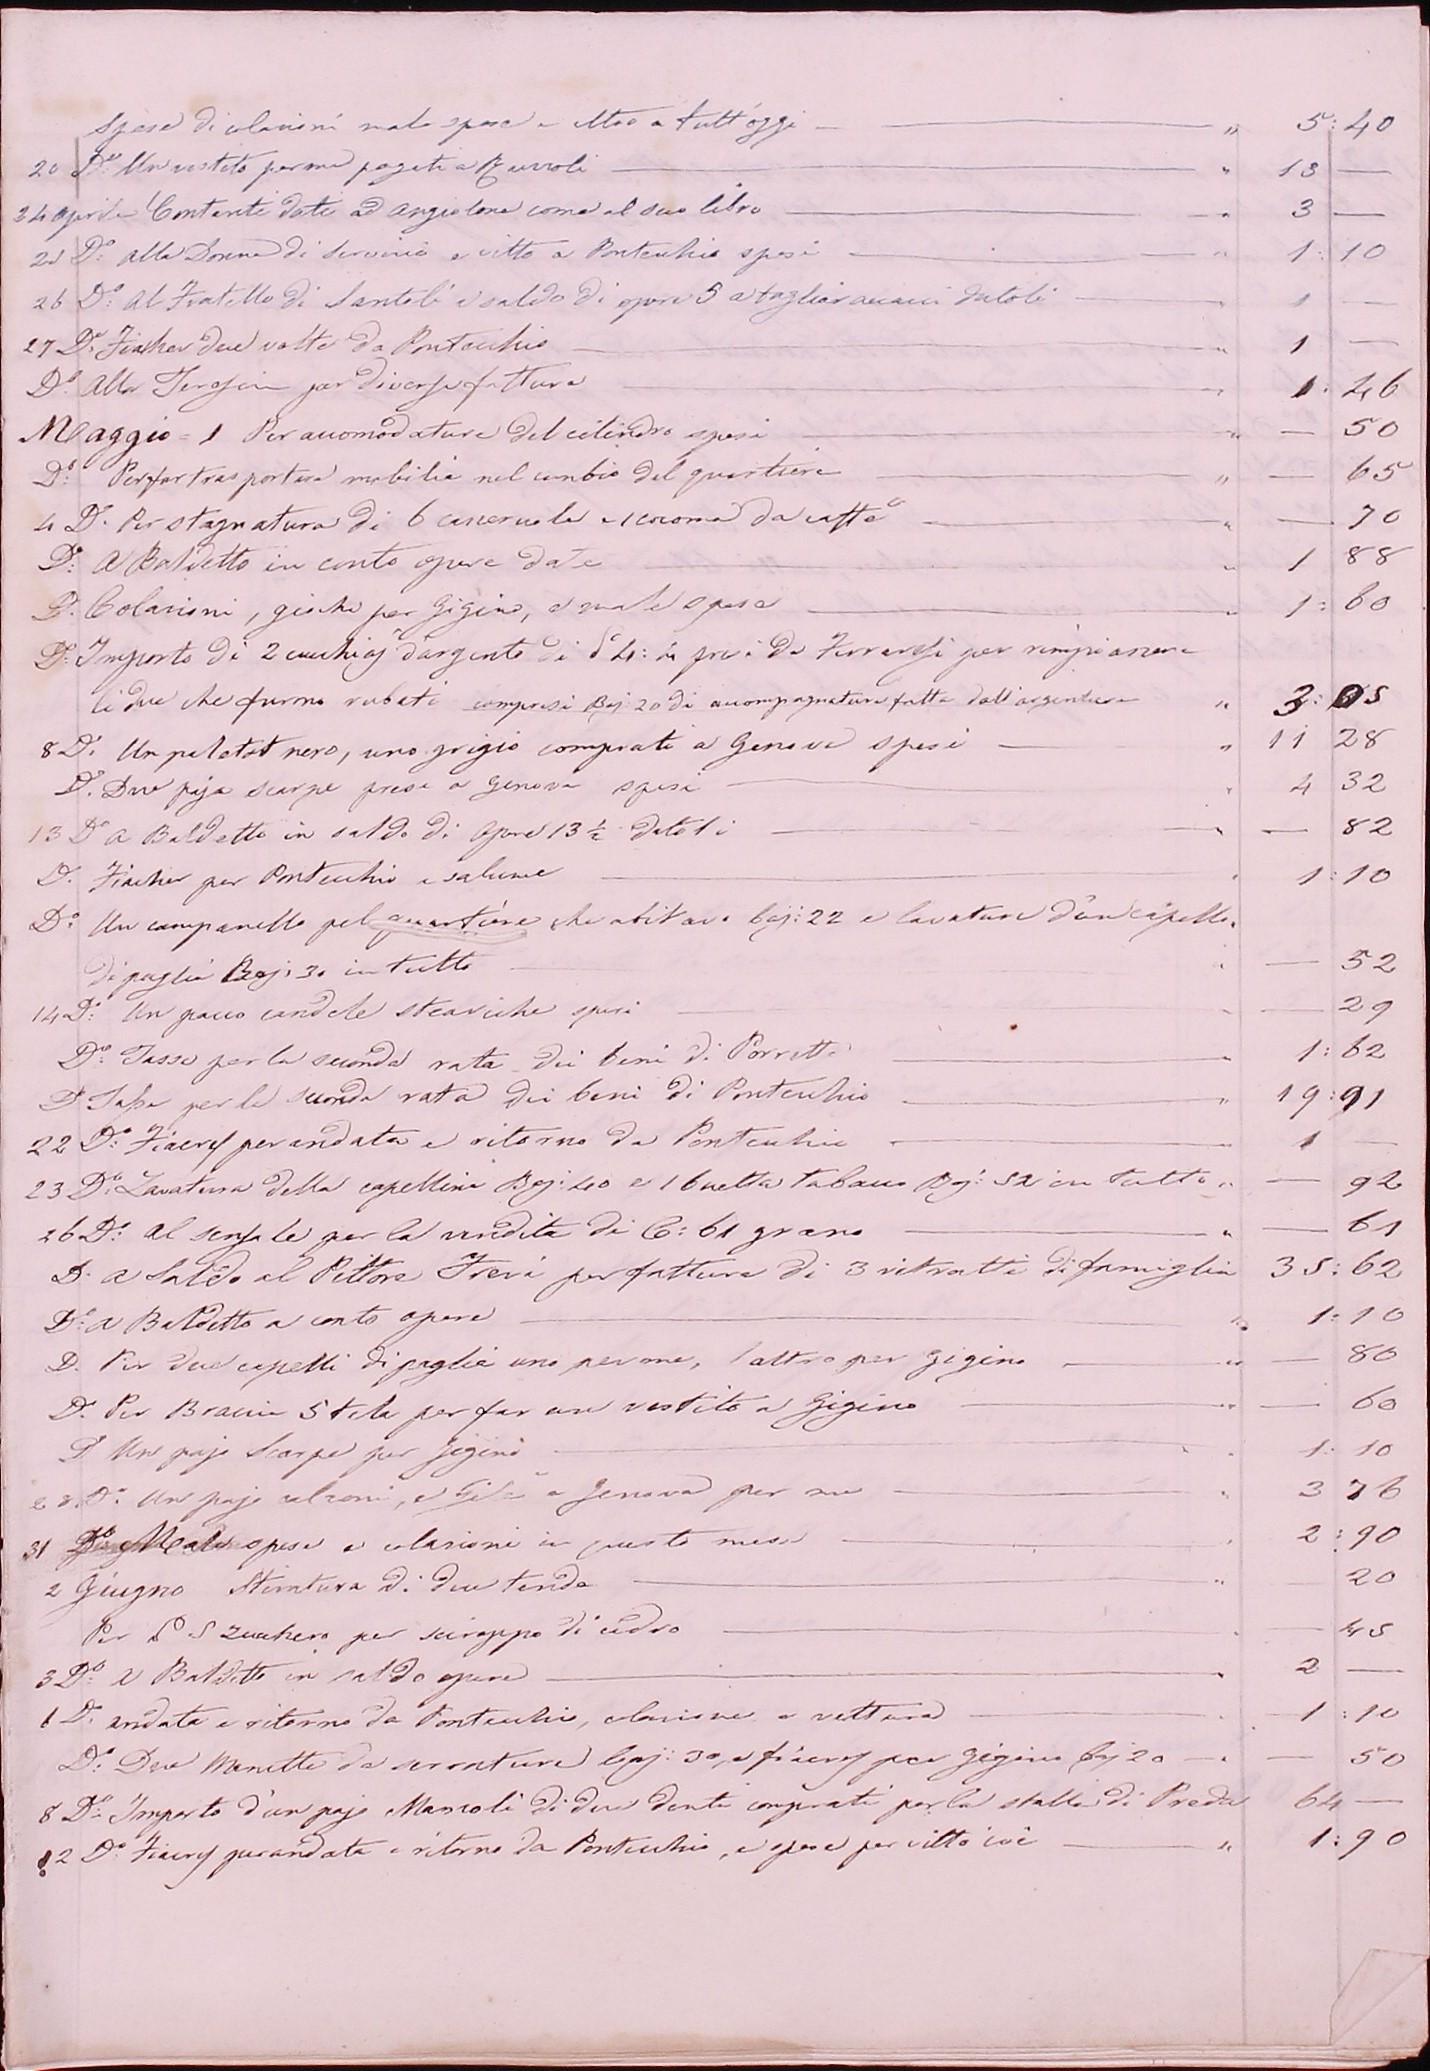 Spese di colazioni male spese e altro a tutt'oggi — " 5:40
20 Do Un vestito per me pagati a — " 13 —
24 Aprile Contanti dati ad Angiolone come al suo libro — " 3 —
25 Do: alla Donna di Servizio e vitto a Pontecchio spesi — " 1:10
26 Do al Fratello di Santoli a saldo di opere 5 a tagliar datoli — " 1 —
27 Do: Fiacher due volte da Pontecchio — " 1 —
Do alla Teresina per diverse fatture — " 1.46
Maggio = 1 Per accomodature del cilindro spesi — " — 50
Do: Per far trasportare mobilia nel cambio del quartiere — " — 65
4 Do. Per stagnatura di 6 caseruole e 1 cocoma da caffè — " — 70
Do: a Baldetto in conto opere date — " 1 88
Do. Colazioni, giochi per Gigino, e male spese — " 1:60
Do: Importo di 2 cucchiaj d'argento di 4:4 presi da Ferraresi per rimpiazzare
li due che furno rubati compresi Baj: 20 di accompagnatura fatta dall'argentiere " 3:05
8 Do. Un paletot nero, uno grigio comprati a Genova spesi — " 11 28
Do. Due paja scarpe prese a Genova spesi — " 4 32
13 Do a Baldetto in saldo di opere 13 ½ datoli — " — 82
Do. Fiacher per Pontecchio e salume — " 1:10
Do: Un campanello pel quartiere che abitavo baj: 22 e lavatura d'un capello
di paglia Baj: 30 in tutto — " — 52
14 Do: Un pacco candele steariche spesi — " — 29
Do: Tassa per la seconda rata dei beni di Porretta — " 1:62
Do Tassa per la seconda rata dei beni di Pontecchio — " 19:91
22 Do: Fiacres per andata e ritorno da Pontecchio — " 1 —
23 Do: Lavatura della capellina Baj: 40 e 1 buetta tabacco Baj: 52 in tutto " — 92
26 Do: al sensale per la vendita di C: 61 grano — " — 61
Do. a Saldo al Pittore Trevi per fattura di 3 ritratti di famiglia 35:62
Do: a Baldetto a conto opere — " 1:10
Do. Per due capelli di paglia uno per me, l'altro per Gigino — " — 80
Do. Per Braccia 5 tela per far un vestito a Gigino — " — 60
Do Un pajo Scarpe per Gigino — " 1:10
Do. Un pajo calzoni, e Gilè a Genova per me — " 3 76
31 Do Male spese e colazioni in questo mese — " 2:90
2 Giugno Stiratura di due tende — " — 20
Per 5 zucchero per sciroppo di cedro — " — 45
3 Do: a Baldetto in saldo opere — " 2 —
6 Do. andata e ritorno da Pontecchio, colazione e vettura — " 1:10
Do: Due Manette da serrature baj: 30, e fiacres per Gigino baj 20 — " — 50
8 Do: Importo d'un pajo Manzoli di due denti comprati per la stalla di Preda 64 —
12 Do: Fiacres per andata e ritorno da Pontecchio, e spese per vitto ivi — " 1:90